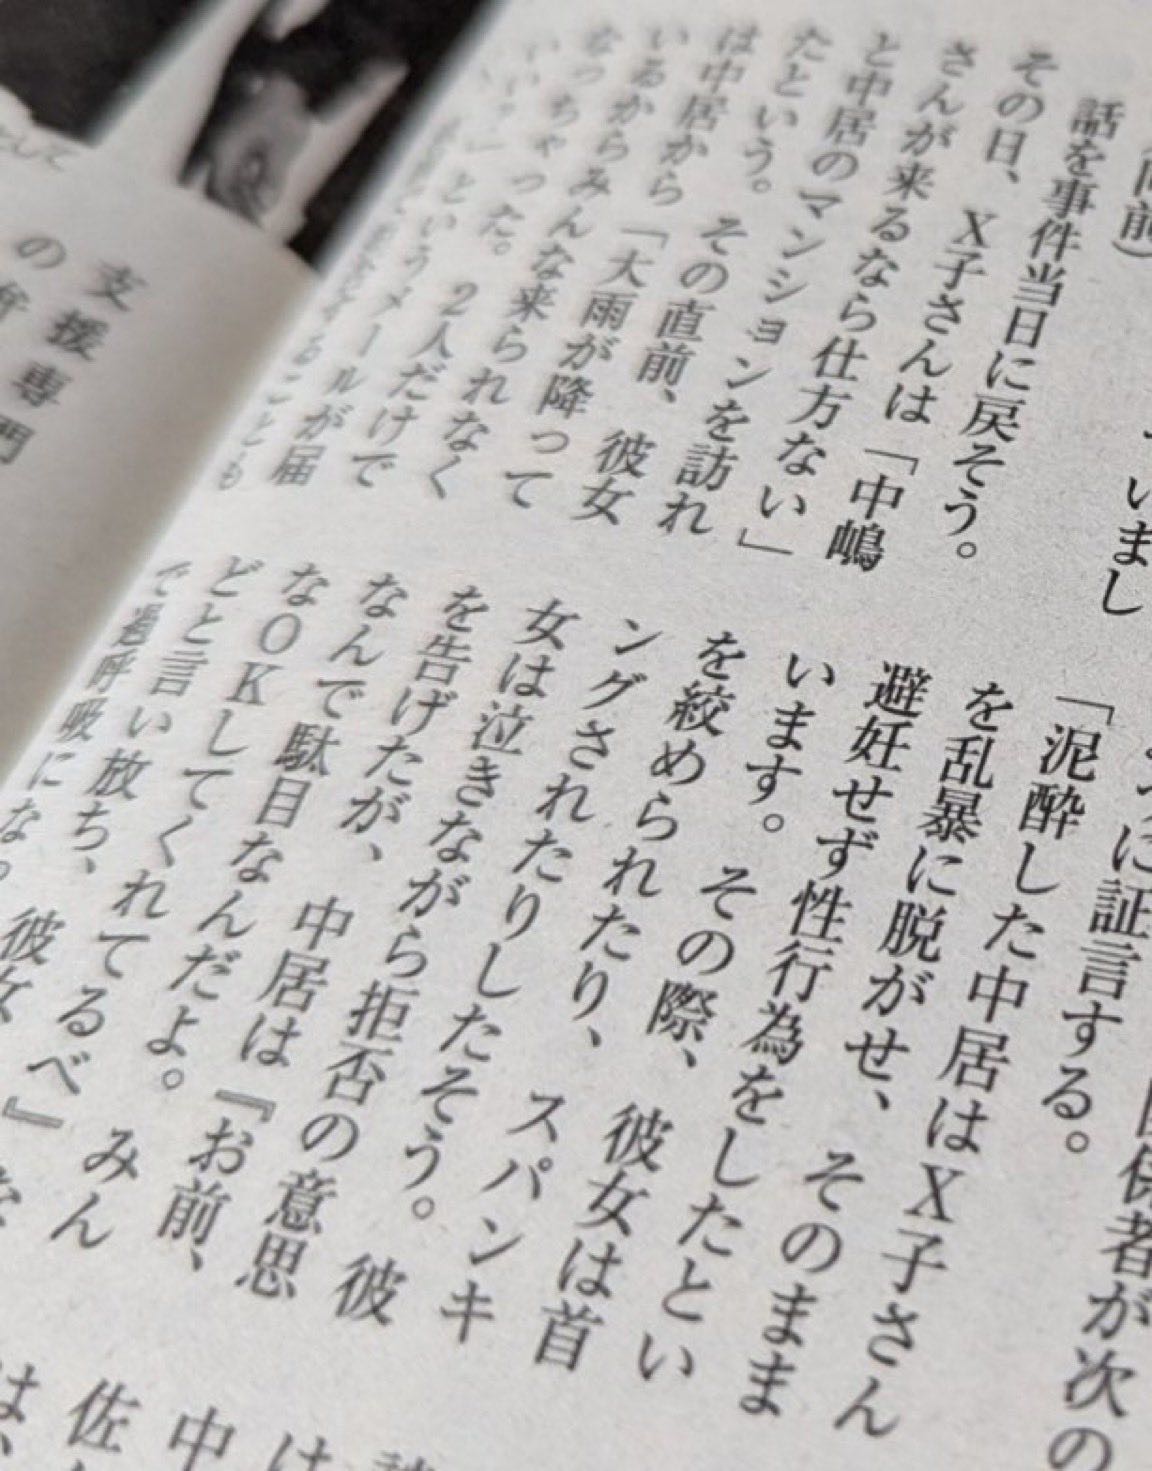 同前）
いまし
話を事件当日に戻そう。
その日、X子さんは「中嶋
さんが来るなら仕方ない」
と中居のマンションを訪れ
たという。その直前、彼女
は中居から「大雨が降って
いるからみんな来られなく
なっちゃった。2人だけで
いい？」というメールが届
ことも
に証言する。
係者が次の
「泥酔した中居はX子さん
を乱暴に脱がせ、そのまま
避妊せず性行為をしたとい
います。その際、彼女は首
を絞められたり、スパンキ
ングされたりしたそう。彼
女は泣きながら拒否の意思
を告げたが、中居は『お前、
なんで駄目なんだよ。みん
なOKしてくれてるべ』な
どと言い放ち、彼女
で過呼吸にな
支援専門
の
として